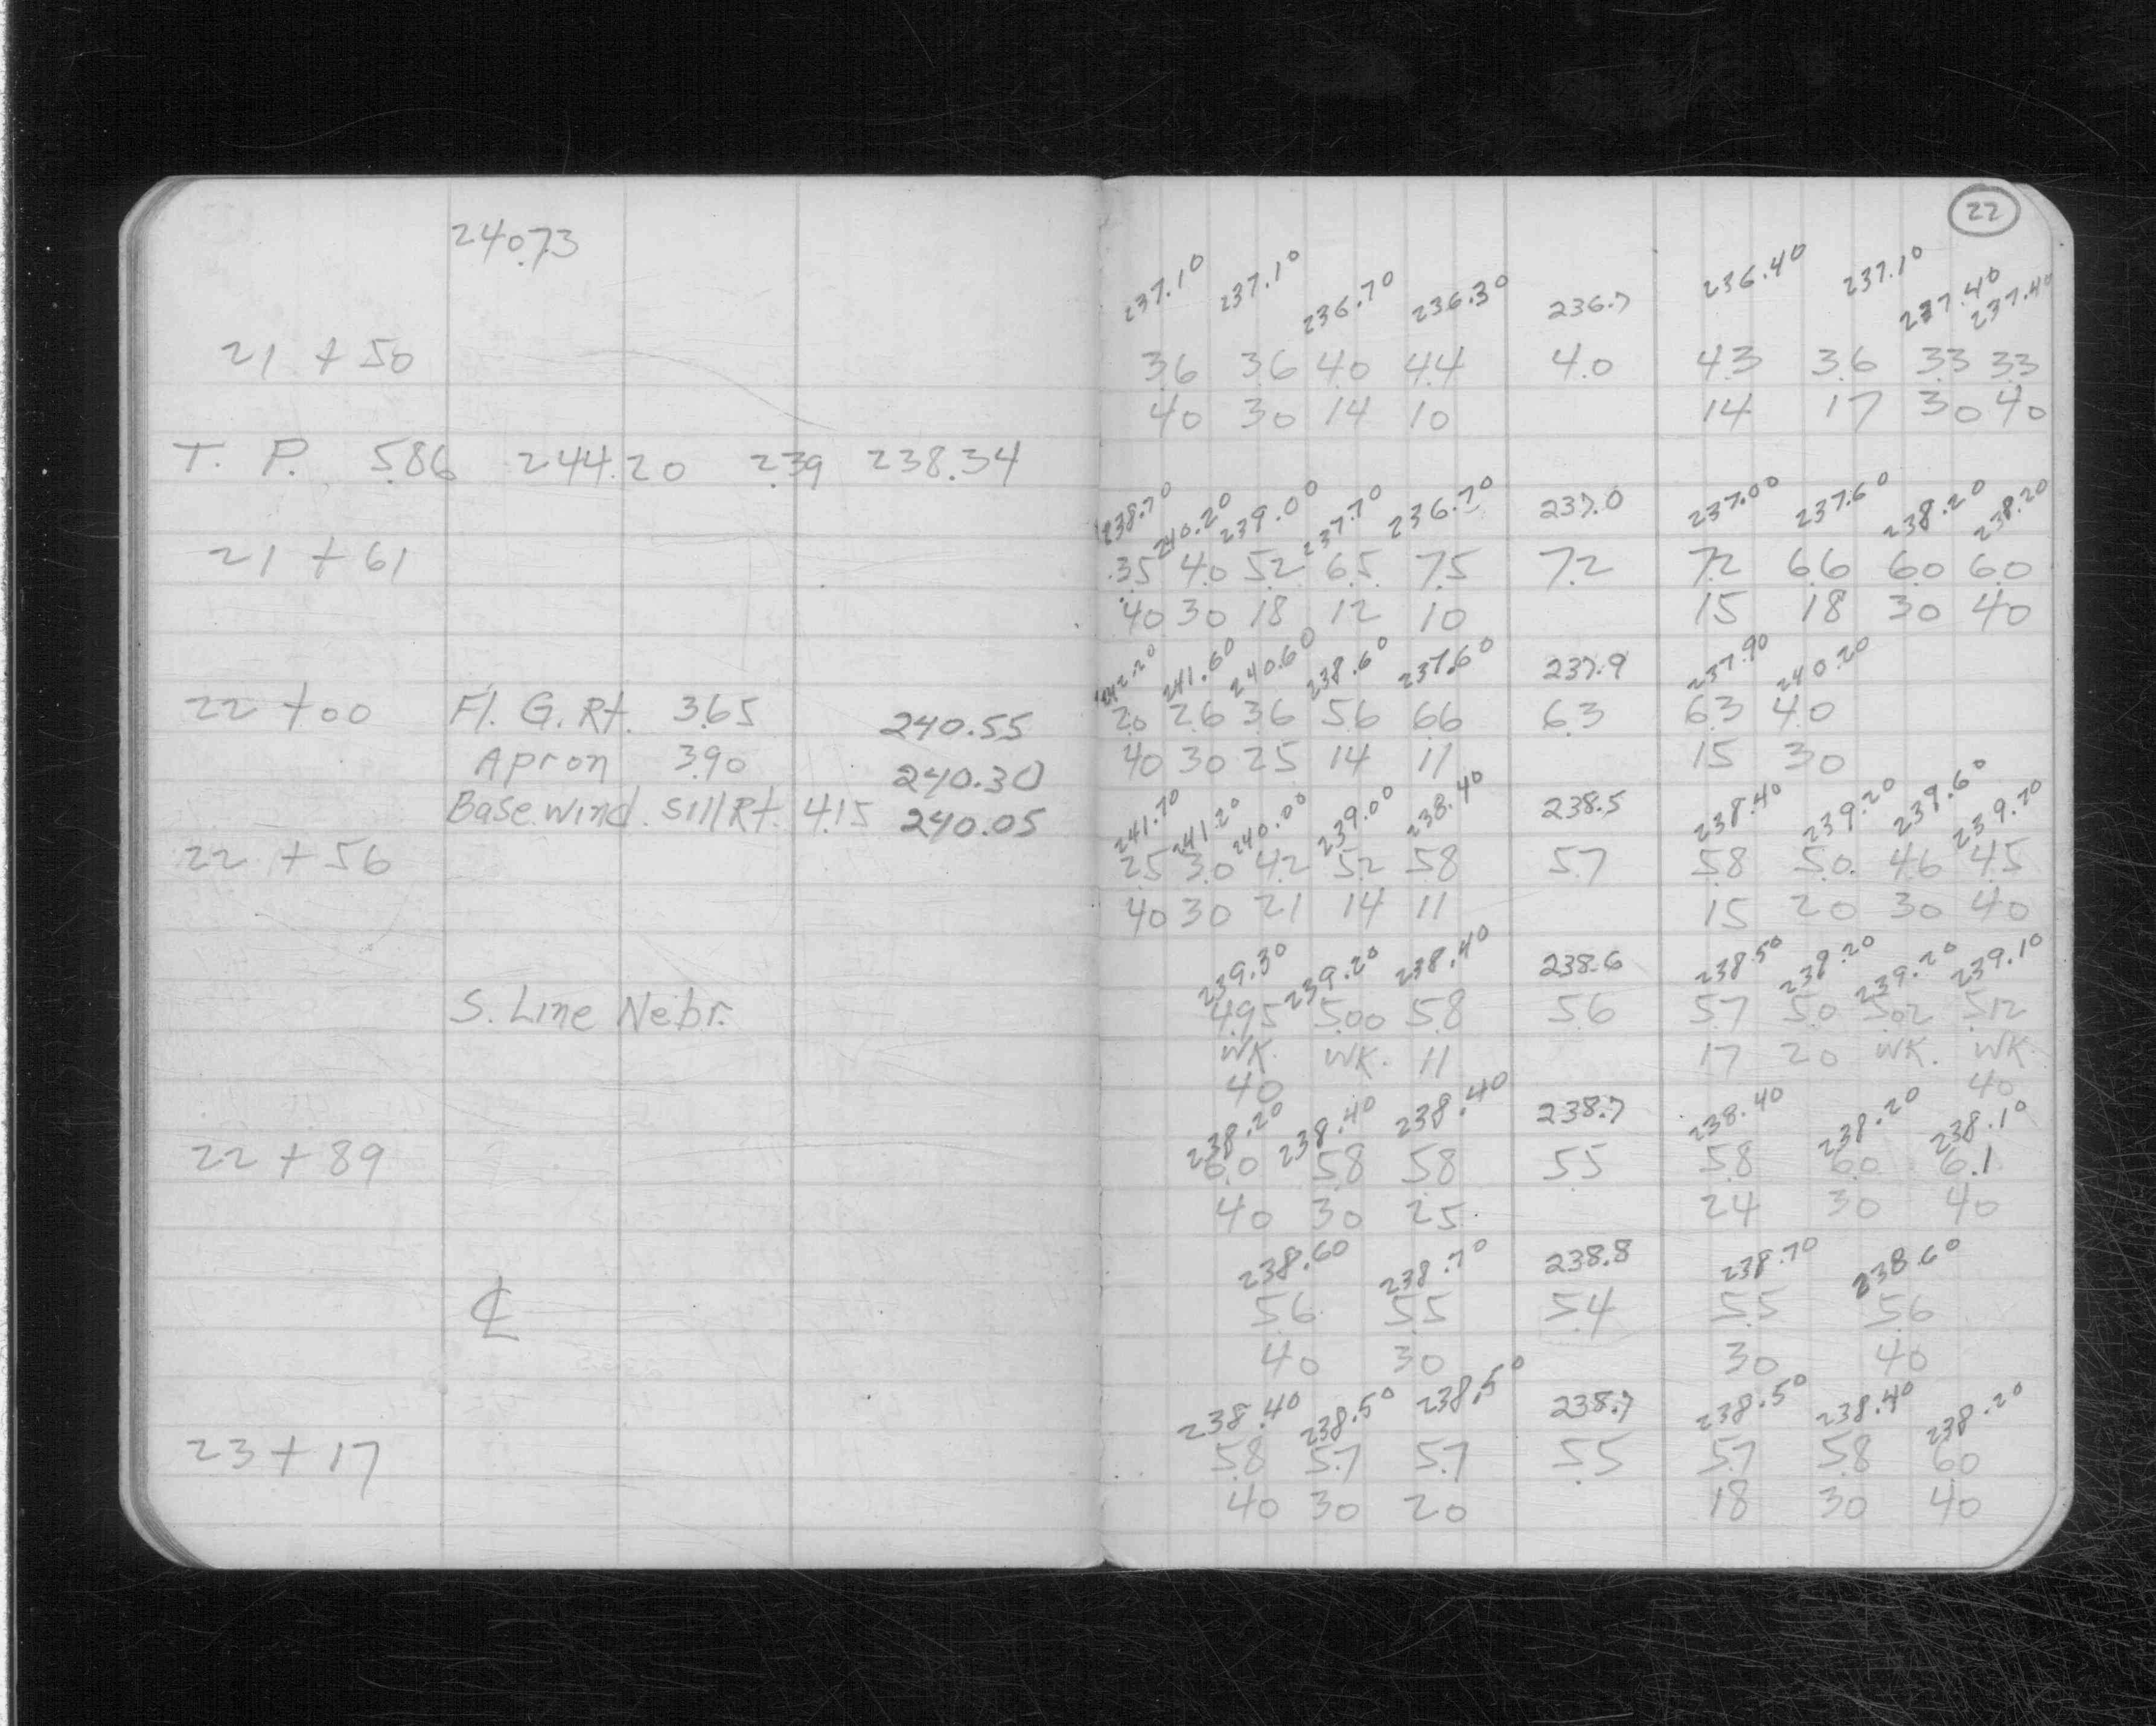 22
240.73
237.10 237.10 236.70 236.30 236.7 236.40 237.10 237.40 237.40
21 + 50 3.6 3.6 4.0 4.4 4.0 4.3 3.6 3.3 3.3
40 30 14 10 14 17 30 40
T. P. 5.86 244.20 2.39 238.34
238.70 240.20 239.00 237.70 236.70 237.0 237.00 237.60 238.20 238.20
21 + 61 3.5 4.0 5.2 6.5 7.5 7.2 7.2 6.6 6.0 6.0
40 30 18 12 10 15 18 30 40
242.20 241.60 240.60 238.60 237.60 237.9 237.90 240.20
22 + 00 Fl. G. Rt. 3.65 240.55 2.0 2.6 3.6 5.6 6.6 6.3 6.3 4.0
Apron 3.90 240.30 40 30 25 14 11 15 30
Base. Wind. Sill Rt. 4.15 240.05
241.70 241.20 240.00 239.00 238.40 238.5 238.40 239.20 239.60 239.70
22 + 56 2.5 3.0 4.2 5.2 5.8 5.7 5.8 5.0 4.6 4.5
40 30 21 14 11 15 20 30 40
239.30 239.20 238.40 238.6 238.50 239.20 239.20 239.10
S. Line Nebr. 4.95 5.00 5.8 5.6 5.7 5.0 5.02 5.12
WK. WK. 11 17 20 WK. WK.
40 40
238.20 238.40 238.40 238.7 238.40 238.20 238.10
22 + 89 6.0 5.8 5.8 5.5 5.8 6.0 6.1
40 30 25 24 30 40
238.60 238.70 238.8 238.70 238.60
℄ 5.6 5.5 5.4 5.5 5.6
40 30 30 40
238.40 238.50 238.50 238.7 238.50 238.40 238.20
23 + 17 5.8 5.7 5.7 5.5 5.7 5.8 6.0
40 30 20 18 30 40